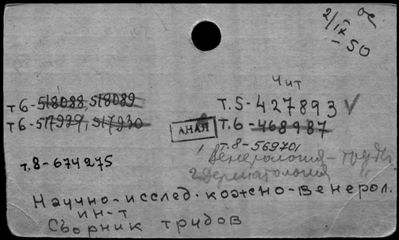 2/IX - 50
Чит
т6-518088, 518089
т.5-427893 ✓
т6-517929, 517930
АНАЛ
т.6-468987
т.8-569701
т.8-674275
1 Венерология - труды
2 Дерматология "
Научно-исслед. кожно-венерол.
ин-т
Сборник трудов